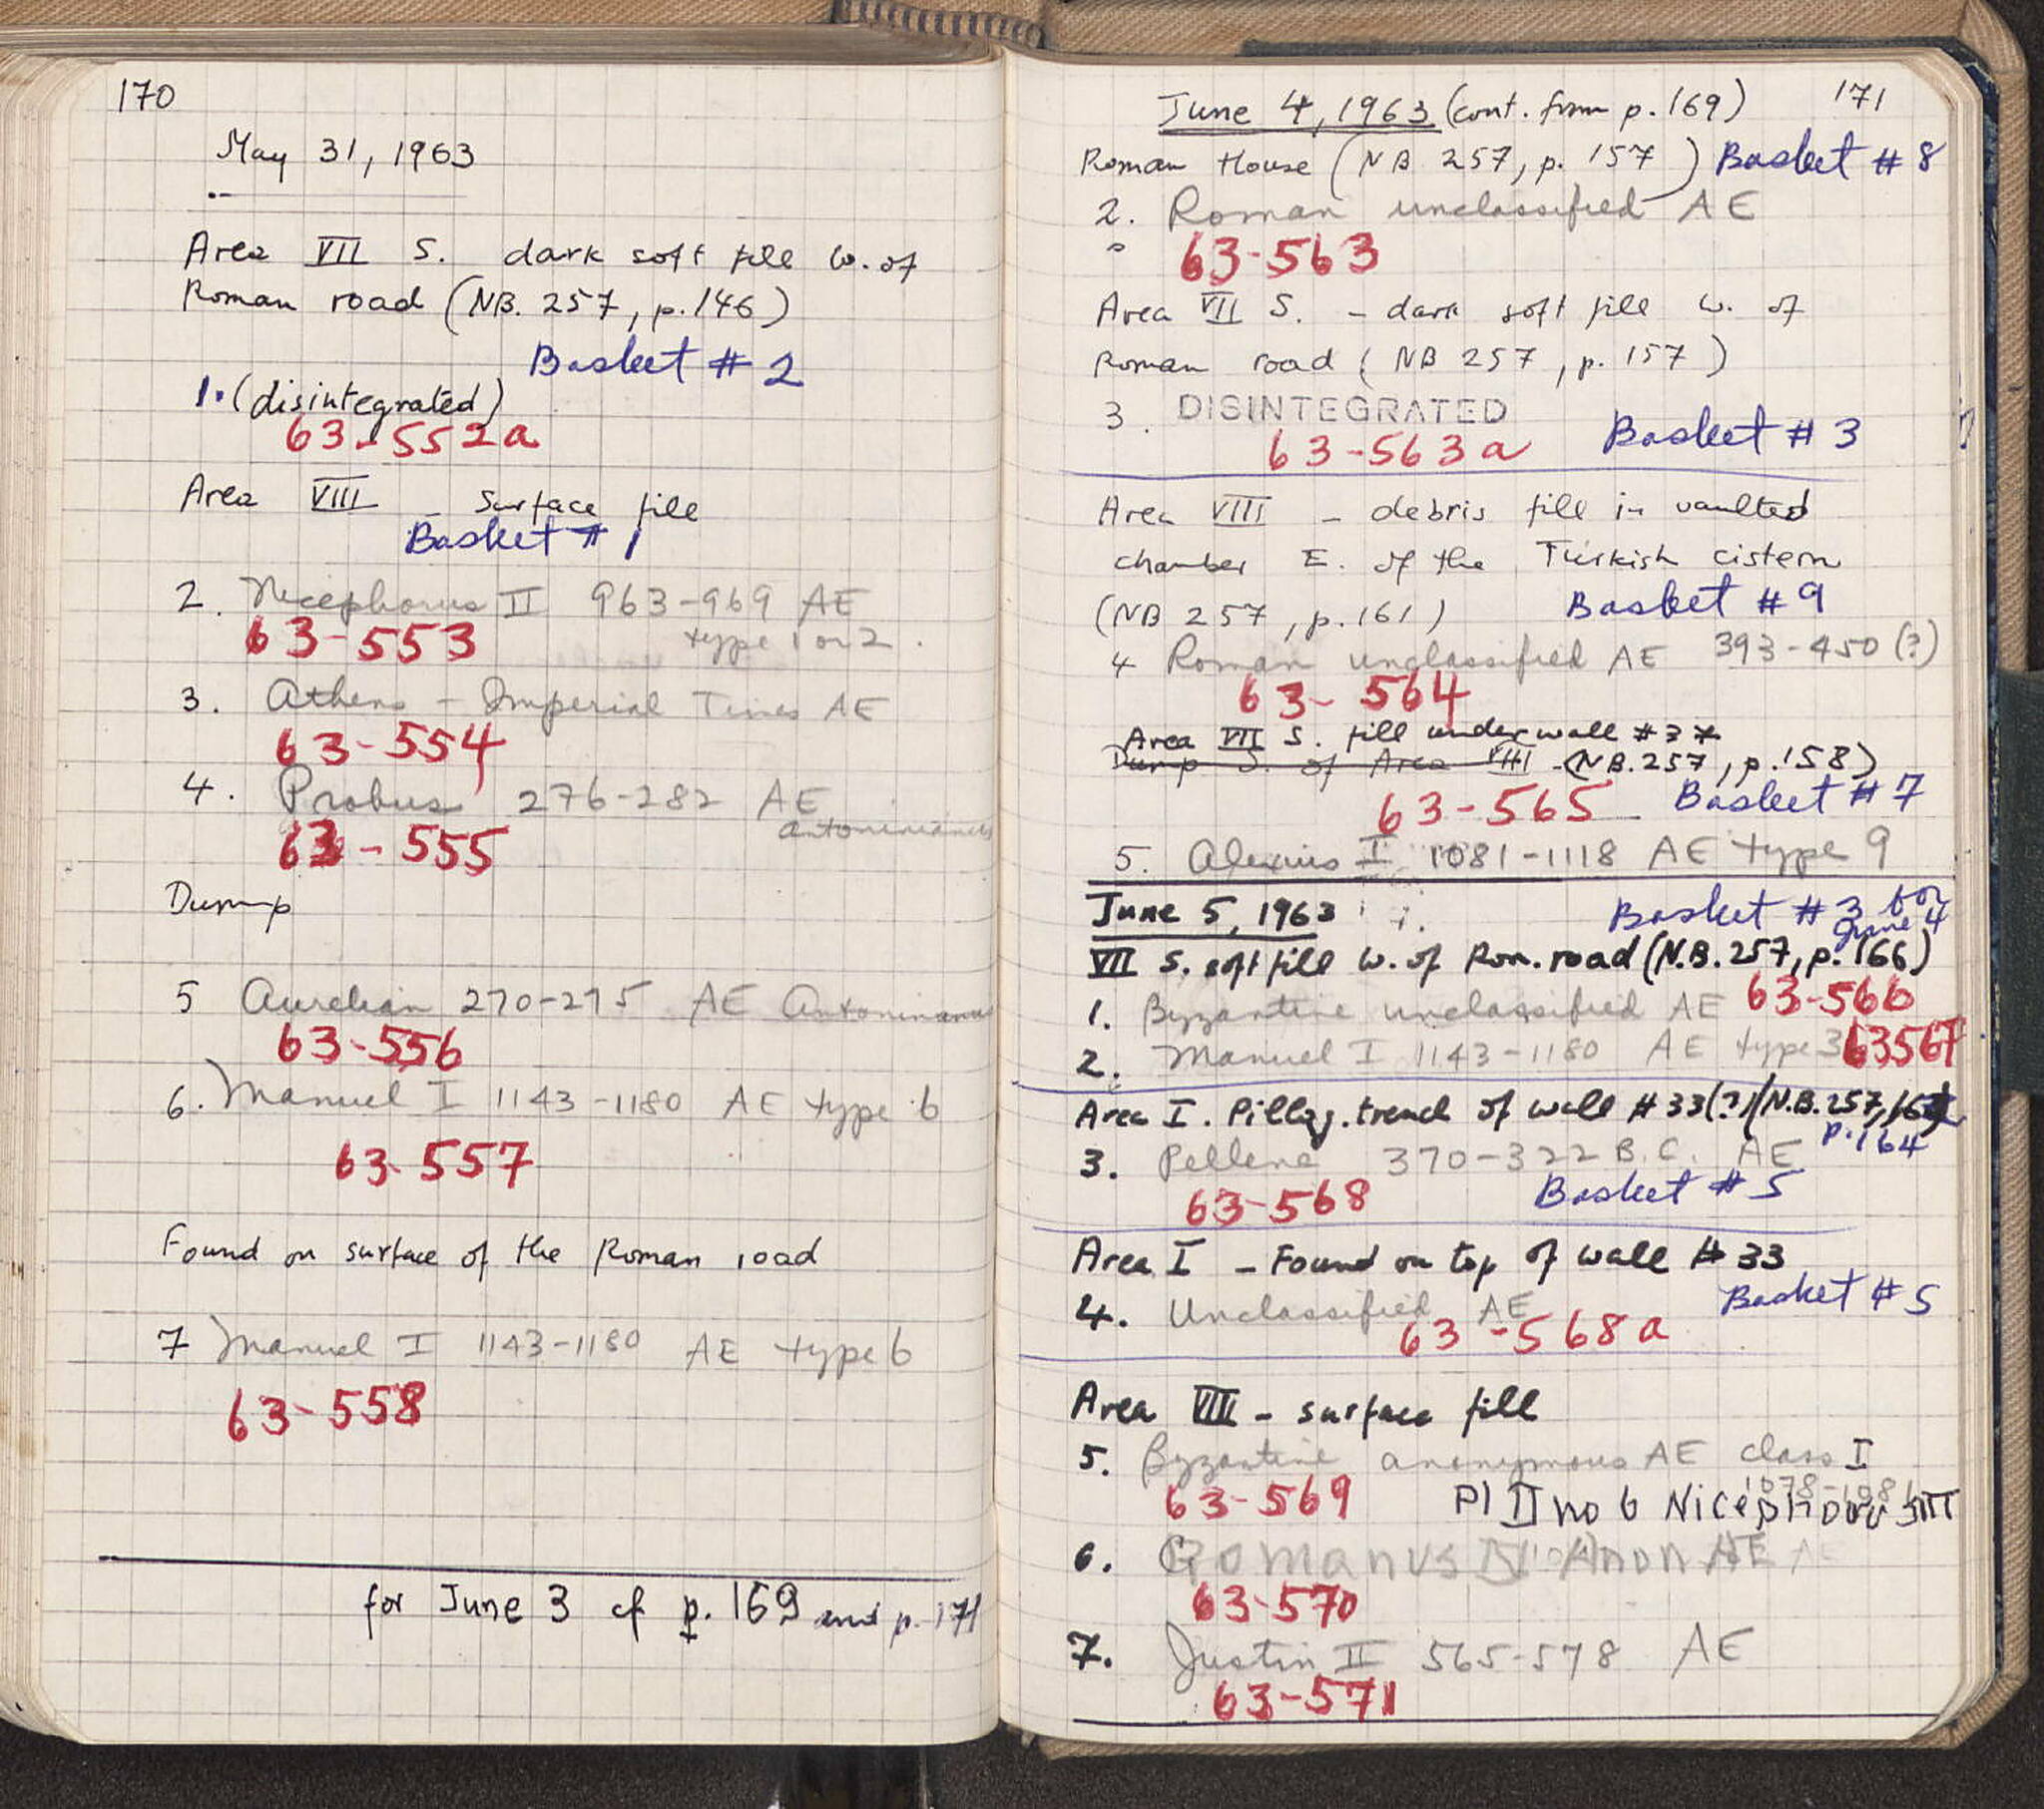 170
May 31, 1963
Area VII S. dark soft fill W. of
Roman road (NB. 257, p. 146)
Basket # 2
1. (disintegrated)
63-552a
Area VIII - Surface fill
Basket # 1
2. Nicephorus II 963-969 AE
63-553 type 1 or 2.
3. Athens - Imperial Times AE
63-554
4. Probus 276-282 AE
antoninianus
63-555
Dump
5 Aurelian 270-275 AE Antoninianus
63-556
6. Manuel I 1143-1180 AE type 6
63-557
Found on surface of the Roman road
7 Manuel I 1143-1180 AE type 6
63-558
for June 3 cf p. 169 and p. 171
171
June 4, 1963 (cont. from p. 169)
Roman House (NB 257, p. 157) Basket # 8
2. Roman unclassified AE
63-563
Area VII S. - dark soft fill W. of
Roman road (NB 257, p. 157)
3. DISINTEGRATED
63-563a Basket # 3
Area VIII - debris fill in vaulted
chamber E. of the Turkish cistern
(NB 257, p. 161) Basket # 9
4 Roman unclassified AE 393-450 (?)
63-564
Area VII S. fill under wall # 37
Dump S. of Area VIII - (NB. 257, p. 158)
63-565 Basket # 7
5. Alexius I 1081-1118 AE type 9
June 5, 1963 Basket # 3 for June 4
VII S. soft fill W. of Rom. road (N.B. 257, p. 166)
1. Byzantine unclassified AE 63-566
2. Manuel I 1143-1180 AE type 3 63567
Area I. Pillag. trench of wall # 33(?) (N.B. 257,
p. 164
3. Pellene 370-322 B.C. AE
63-568 Basket # 5
Area I - Found on top of wall # 33
Basket # 5
4. Unclassified AE
63-568a
Area VIII - surface fill
5. Byzantine anonymous AE class I
1078-1081
63-569 Pl II no 6 Nicephorus III
6. Romanus IV Anon AE
63-570
7. Justin II 565-578 AE
63-571